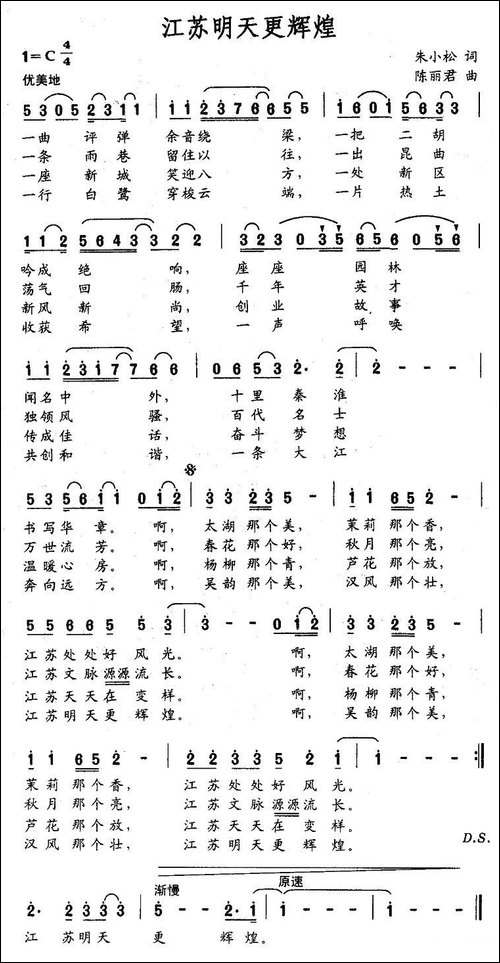 江苏明天更辉煌
1=C 4/4
朱小松 词
优美地
陈丽君 曲
5 3 0 5 2 3 1 1 | 1 1 2 2 3 7 6 6 5 5 | 1 6 0 1 5 6 3 3
一曲 评弹 余音绕 梁，一把 二胡
一条 雨巷 留住以 往，一出 昆曲
一座 新城 笑迎八 方，一处 新区
一行 白鹭 穿梭云 端，一片 热土
1 1 2 5 6 4 3 3 2 2 | 3 2 3 0 3 5 6 5 6 0 5 6
吟成 绝 响，座座 园林
荡气 回 肠，千年 英才
新风 新 尚，创业 故事
收获 希 望，一声 呼唤
1 1 2 3 1 7 7 6 6 | 0 6 5 3 5 2· 2 | 2 - - -
闻名中 外，十里 秦淮
独领风 骚，百代 名士
传成佳 话，奋斗 梦想
共创和 谐，一条 大江
5 3 5 6 1 1 0 1 2 | 3 3 2 3 5 - | 1 1 6 5 2 -
书写华 章。啊，太湖 那个美，茉莉 那个香，
万世流 芳。啊，春花 那个好，秋月 那个亮，
温暖心 房。啊，杨柳 那个青，芦花 那个放，
奔向远 方。啊，吴韵 那个美，汉风 那个壮，
5 5 6 6 5 5 3 | 3 - - 0 1 2 | 3 3 2 3 5 -
江苏处处好 风光。啊，太湖 那个美，
江苏文脉源源流 长。啊，春花 那个好，
江苏天天在 变样。啊，杨柳 那个青，
江苏明天更 辉煌。啊，吴韵 那个美，
1 1 6 5 2 - | 2 2 3 3 5 2 1 | 1 - - - :||
茉莉 那个香，江苏处处好 风光。
秋月 那个亮，江苏文脉源源流 长。
芦花 那个放，江苏天天在 变样。
汉风 那个壮，江苏明天更 辉煌。
D.S.
渐慢 原速
2· 2 3 3 3 | 5 - - 2·1 | 1 - - - | 1 - - - ||
江 苏明天 更 辉煌。